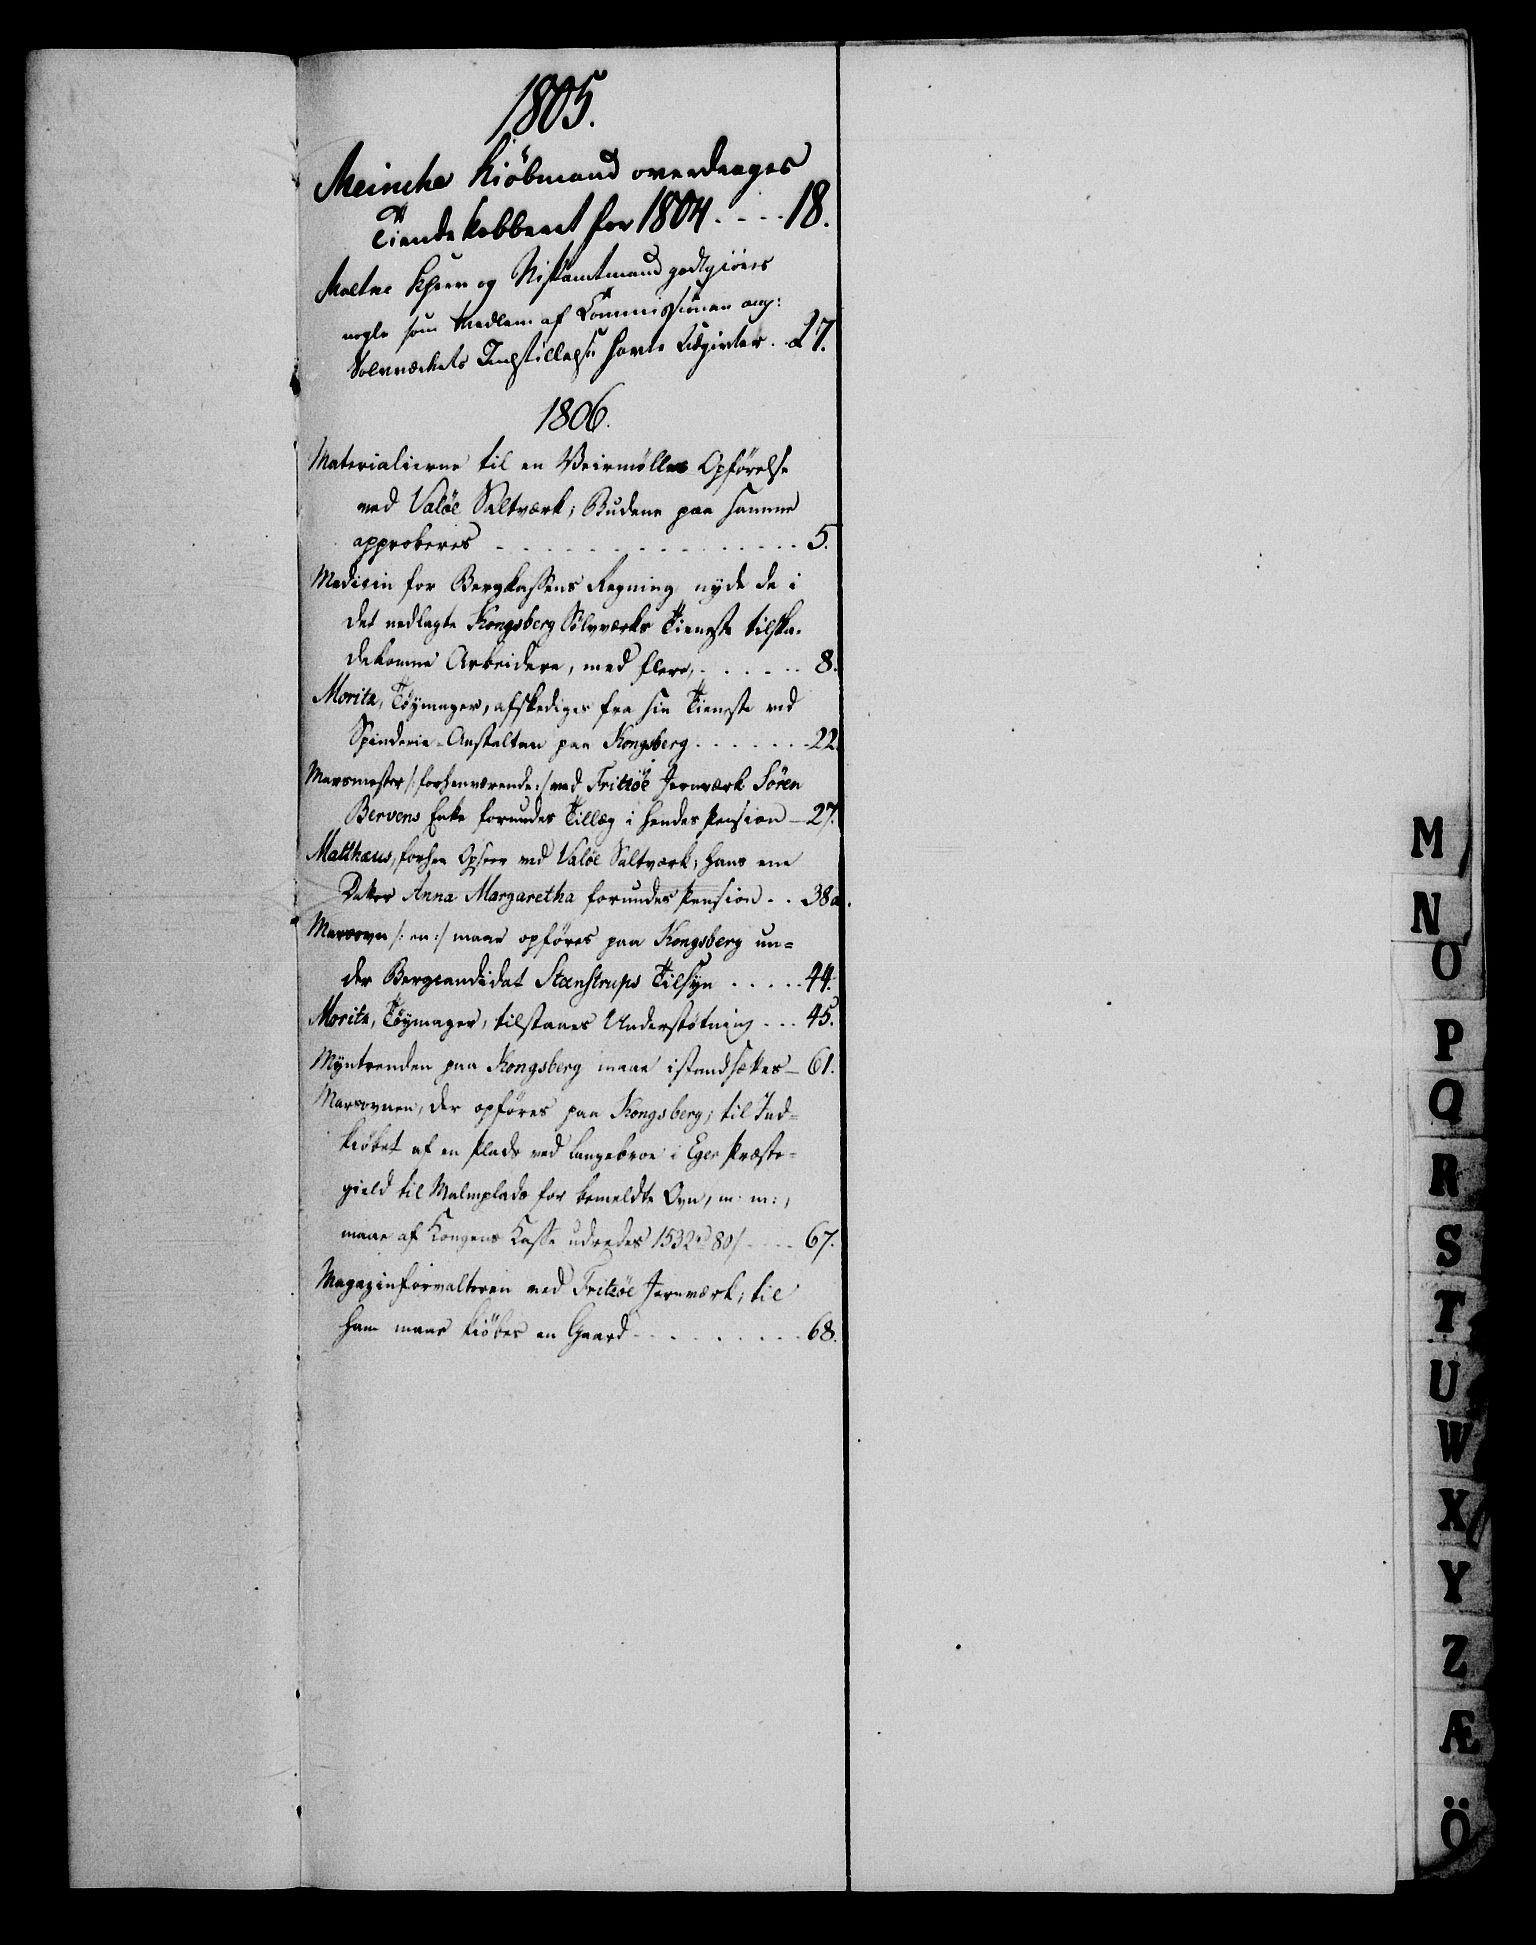 1805.
Meincke Kiöbmand overdrages
Tiendekobberet for 1804 - - - - 18.
Moltke Herr og Stiftamtmand godtgiöres
nogle som Medlem af Commissionen ang:
Solvværkets Indstillelse havte Udgivter. - 27.
1806.
Materialierne til en Veirmölles Opförelse
ved Valöe Saltværk; Budene paa samme
approberes - - - - - - - - - - 5.
Medicin for Bergkassens Regning nyde de i
det nedlagte Kongsberg Sölvværks Tieneste tilska-
dekomne Arbeidere, med flere, - - - - - 8.
Moritz, Töymager, afskediges fra sin Tieneste ved
Spinderie-Anstalten paa Kongsberg - - - - - 22.
Marsmester /: forhenværende :/ ved Fritzöe Jernværk Sören
Bervens Enke forundes Tillæg i hendes Pension - 27.
Matthæus, forhen Opseer ved Valöe Saltværk; hans ene
Datter Anna Margaretha forundes Pension - - 38a.
Marsovn /: en :/ maae opföres paa Kongsberg un-
der Bergcandidat Steenstrups Tilsyn - - - - - 44.
Moritz, Töymager, tilstaaes Understötning - - - 45.
Myntrenden paa Kongsberg maae istandsættes - 61.
Marsovnen, der opföres paa Kongsberg; til Ind-
kiöbet af en Plads ved Langebroe i Eger Præste-
gield til Malmplads for bemeldte Ovn, m: m:,
maae af Kongens Casse udredes 1532 rd 80 s - - - - 67.
Magazinforvalteren ved Fritzöe Jernværk; til
ham maae kiöbes en Gaard - - - - - - - - 68.
M
N
O
P
Q
R
S
T
U
W
X
Y
Z
Æ
Ö